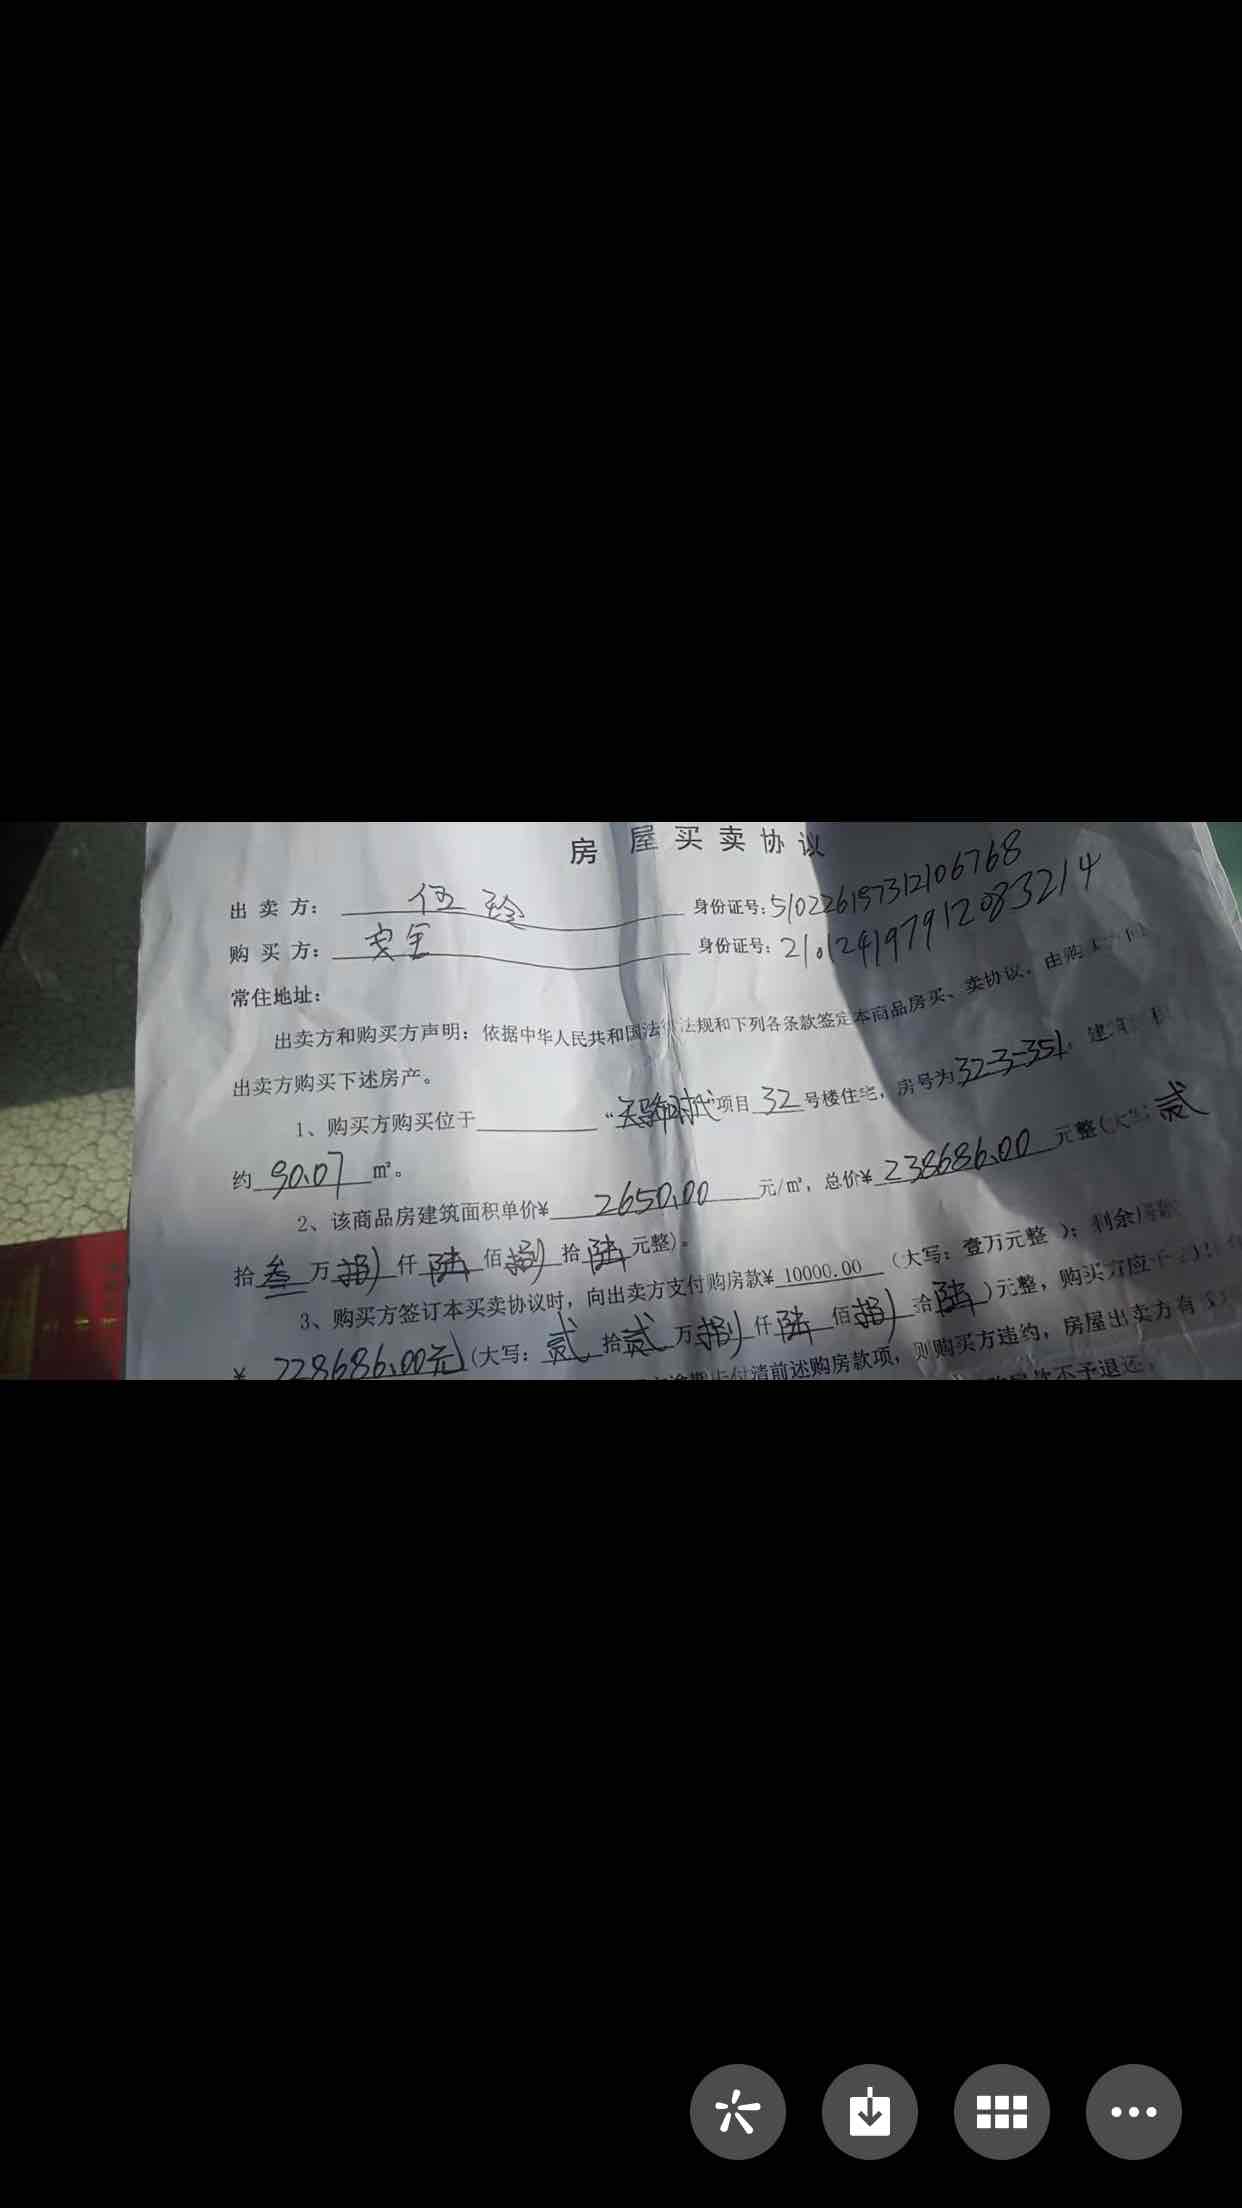 房屋买卖协议
出卖方： 伍玲 身份证号：510226197312106768
购买方： 安全 身份证号：210124197912083214
常住地址：
出卖方和购买方声明：依据中华人民共和国法律法规和下列各条款签定本商品房买、卖协议，由购
出卖方购买下述房产。
1、购买方购买位于 “天骄时代”项目 32 号楼住宅，房号为 32-3-351，建
约 90.07 ㎡。
2、该商品房建筑面积单价¥ 2650.00 元/㎡，总价¥ 238686.00 元整（大写：贰
拾 叁 万 捌 仟 陆 佰 捌 拾 陆 元整）。
3、购买方签订本买卖协议时，向出卖方支付购房款¥ 10000.00 （大写：壹万元整 ）；剩余房款
¥ 228686.00元 （大写： 贰 拾 贰 万 捌 仟 陆 佰 捌 拾 陆 ）元整，购买方应
付清前述购房款项，则购买方违约，房屋出卖方有
不予退还，